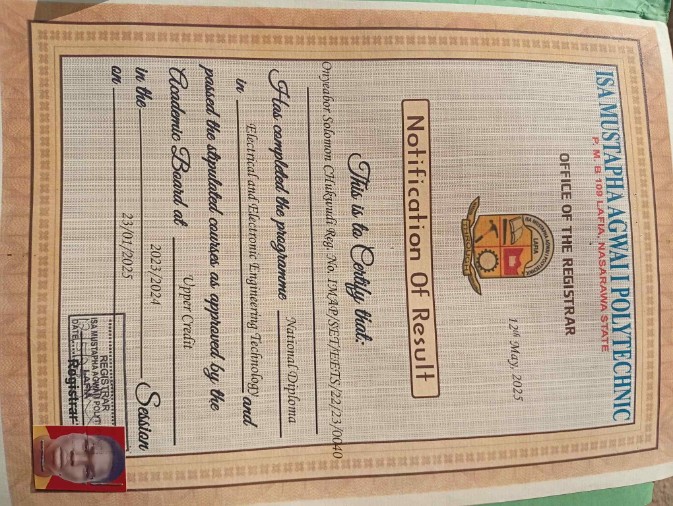 ISA MUSTAPHA AGWAI I POLYTECHNIC
P. M. B 109 LAFIA, NASARAWA STATE
OFFICE OF THE REGISTRAR
12th May, 2025
Notification Of Result
This is to Certify that:
Onyeabor Solomon CHukwudi Reg. No. IMAP/SET/E/ETS/22/23/0040
Has completed the programme National Diploma
in Electrical and Electronic Engineering Technology and
passed the stipulated courses as approved by the
Academic Board at Upper Credit
in the 2023/2024 Session
on 23/01/2025
REGISTRAR
ISA MUSTAPHA AGWAI I POLY
LAFIA
DATE
Registrar